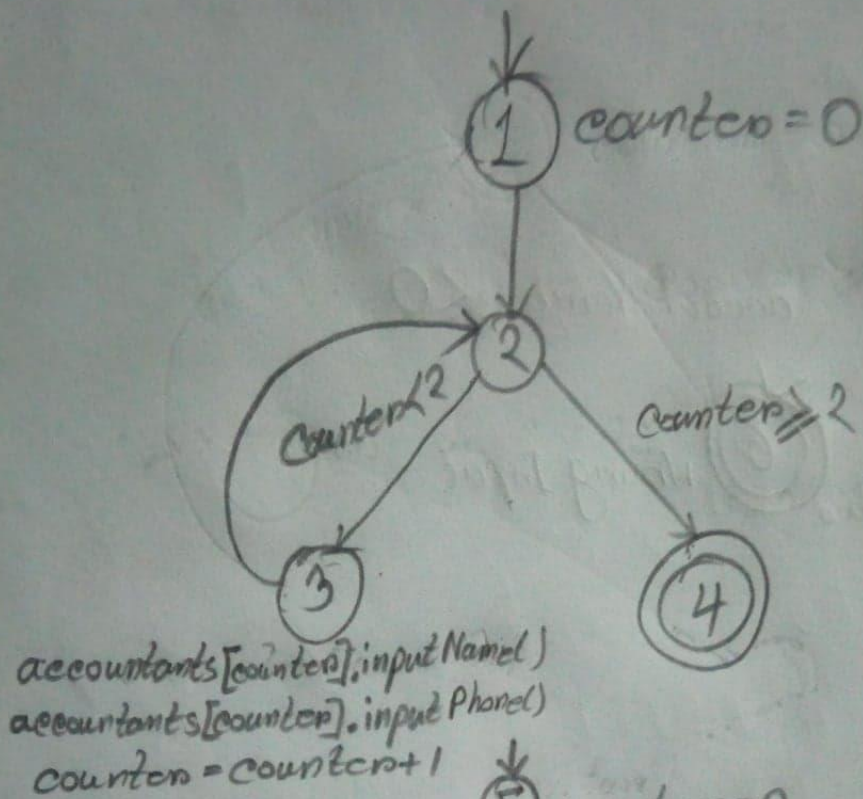 1 counter = 0
2
counter<2
counter≥2
3
4
accountants[counter].inputName()
accountants[counter].inputPhone()
counter = counter+1